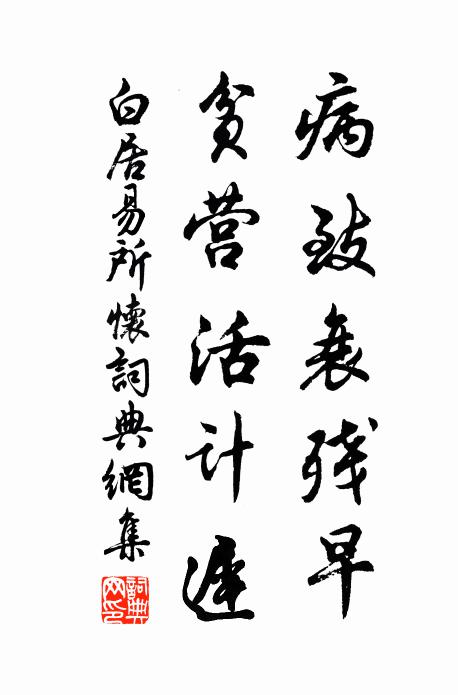 病致衰残早
贫营活计遲
白居易所懷詞典網集
詞典网印